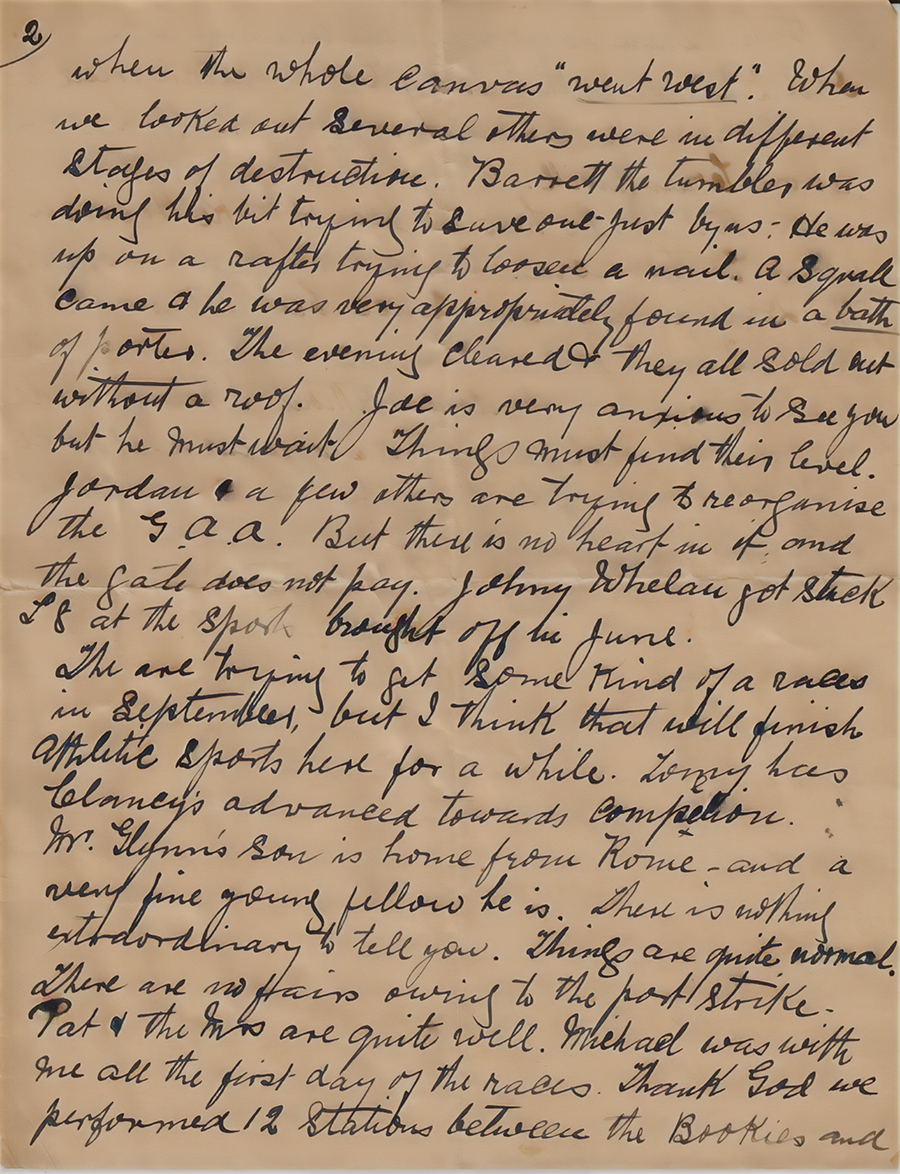 2
when the whole canvas "went west". When
we looked out several others were in different
stages of destruction. Barrett the tumbler was
doing his bit trying to save one just by us - He was
up on a rafter trying to loosen a nail. A Squall
came & he was very appropriately found in a bath
of porter. The evening cleared & they all sold out
without a roof. Joe is very anxious to see you
but he must wait. Things must find their level.
Jordan & a few others are trying to reorganise
the G.A.A. But there is no heart in it and
the gate does not pay. Johny Whelan got stuck
£8 at the sports brought off in June.
The are trying to get some kind of a races
in September, but I think that will finish
Athletic Sports here for a while. has
Clancy's advanced towards
Mr. Glynn's son is home from Rome - and a
very fine young fellow he is. There is nothing
extraordinary to tell you. Things are quite normal.
There are no fairs owing to the port strike.
Pat & the Mrs are quite well. Michael was with
me all the first day of the races. Thank God we
performed 12 Stations between the Bookies and